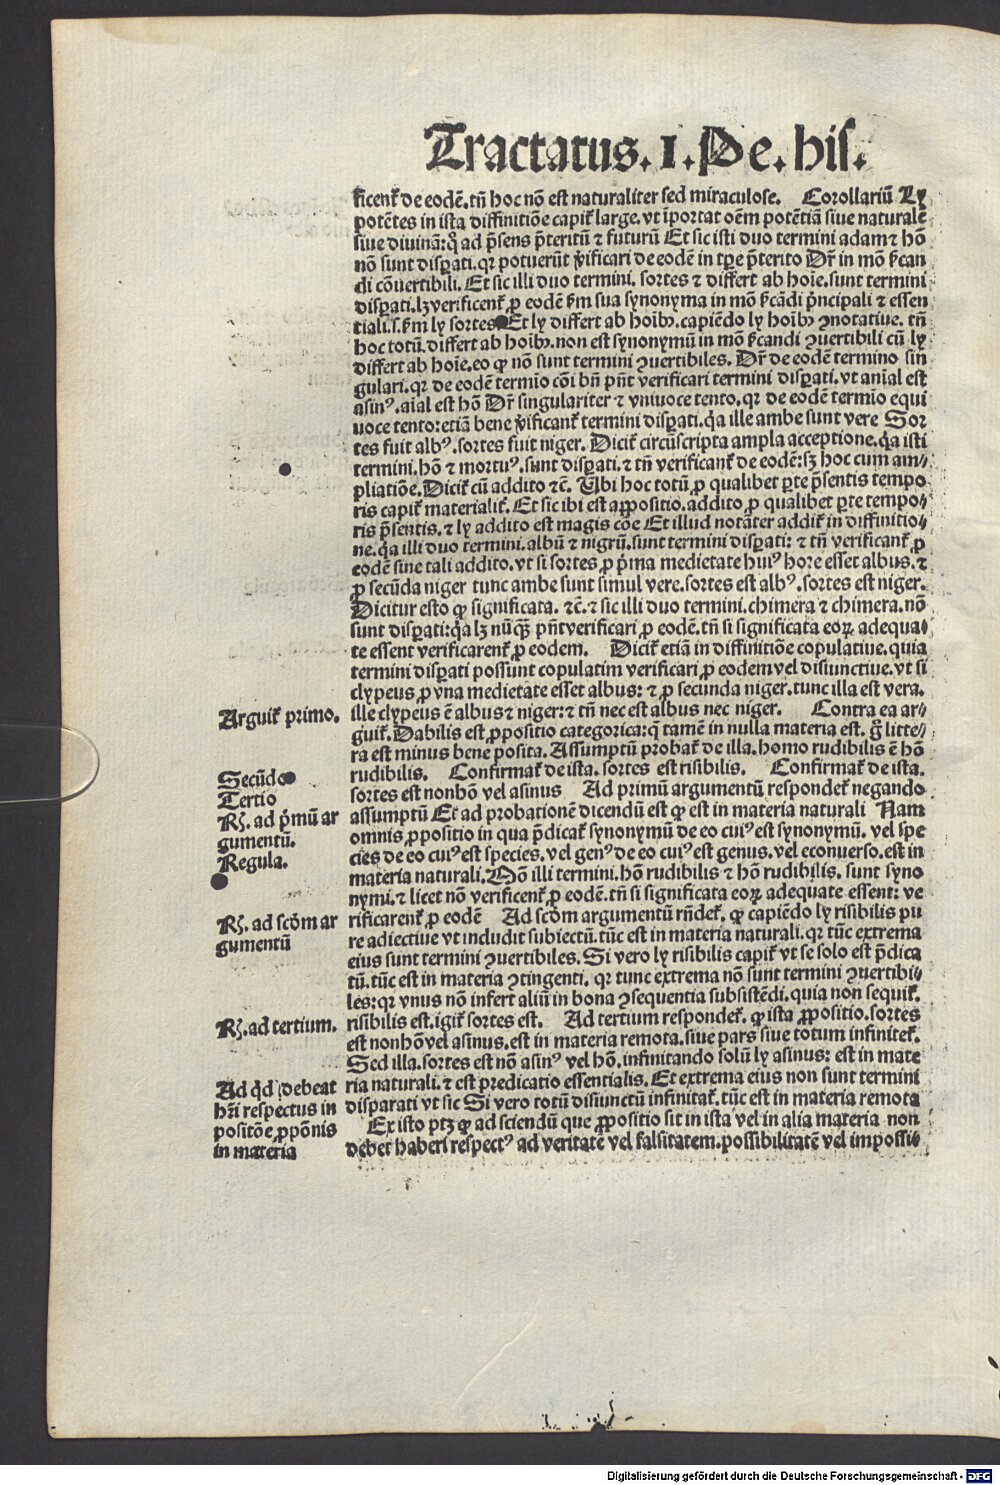 Tractatus. I. De. his.
ficenť de eodē. tñ hoc nō est naturaliter sed miraculose. Corollariū Ly
potētes in ista diffinitiōe capiť large. vt īportat oēm potētiā siue naturalē
siue diuinā: qꝫ ad p̄sens p̄teritū ⁊ futurū Et sic isti duo termini adam ⁊ hō
nō sunt disꝑati. qꝛ potuerūt v̓ificari de eodē in tꝑe p̄terito Dr̄ in mō p̄can
di cōuertibili. Et sic illi duo termini. sortes ⁊ differt ab hoīe. sunt termini
disꝑati. lꝫ verificenť ꝓ eodē ẜm sua synonyma in mō p̄cādi p̄ncipali ⁊ essen
tiali. s. ẜm ly sortes Et ly differt ab hoībꝰ. capiēdo ly hoībꝰ ꝯnotatiue. tñ
hoc totū. differt ab hoībꝰ. non est synonymū in mō p̄candi ꝯuertibili cū ly
differt ab hoīe. eo ꝙ nō sunt termini ꝯuertibiles. Dr̄ de eodē termino sin
gulari. qꝛ de eodē termīo cōi bñ pñt verificari termini disꝑati. vt aīal est
asinꝰ. aīal est hō Dr̄ singulariter ⁊ vniuoce tento. qꝛ de eodē termīo equi
uoce tento: etiā bene v̓ificanť termini disꝑati. q̄a ille ambe sunt vere Sor
tes fuit albꝰ. sortes fuit niger. Diciť circūscripta ampla acceptione. q̄a isti
termini. hō ⁊ mortuꝰ. sunt disꝑati. ⁊ tñ verificanť de eodē: sꝫ hoc cum am⸗
pliatiōe. Diciť cū addito ⁊c̄. Ubi hoc totū ꝓ qualibet ꝑte p̄sentis tempo
ris capiť materialiť. Et sic ibi est appositio. addito ꝓ qualibet ꝑte tempo⸗
ris p̄sentis. ⁊ ly addito est magis cōe Et illud notāter addiť in diffinitio⸗
ne. q̄a illi duo termini. albū ⁊ nigrū. sunt termini disꝑati: ⁊ tñ verificanť ꝓ
eodē sine tali addito. vt si sortes ꝓ p̄ma medietate huiꝰ hore esset albus. ⁊
ꝓ secūda niger tunc ambe sunt simul vere. sortes est albꝰ. sortes est niger.
Dicitur esto ꝙ significata. ⁊c̄. ⁊ sic illi duo termini. chimera ⁊ chimera. nō
sunt disꝑati: q̄a lꝫ nūq̄ꝫ pñt verificari ꝓ eodē. tñ si significata eoꝝ adequa⸗
te essent verificarenť ꝓ eodem. Diciť etiā in diffinitiōe copulatiue. quia
termini disꝑati possunt copulatim verificari ꝓ eodem vel disiunctiue. vt si
clypeus ꝓ vna medietate esset albus: ⁊ ꝓ secunda niger. tunc illa est vera.
Arguiť primo. ille clypeus ē albus ⁊ niger: ⁊ tñ nec est albus nec niger. Contra ea ar⸗
guiť. Dabilis est ꝓpositio categorica: q̄ tamē in nulla materia est. g̊ litte⸗
ra est minus bene posita. Assumptū probať de illa. homo rudibilis ē hō
Secūdo rudibilis. Confirmať de ista. sortes est risibilis. Confirmať de ista.
Tertio sortes est nonhō vel asinus Ad primū argumentū respondeť negando
Rꝫ. ad p̄mū ar assumptū Et ad probationē dicendū est ꝙ est in materia naturali Nam
gumentū. omnis ꝓpositio in qua p̄dicať synonymū de eo cuiꝰ est synonymū. vel spe
Regula. cies de eo cuiꝰ est species. vel genꝰ de eo cuiꝰ est genus. vel econuerso. est in
materia naturali. Mō illi termini. hō rudibilis ⁊ hō rudibilis. sunt syno
nymi. ⁊ licet nō verificenť ꝓ eodē. tñ si significata eoꝝ adequate essent: ve
Rꝫ. ad scd̄m ar rificarenť ꝓ eodē Ad scd̄m argumentū rñdeť. ꝙ capiēdo ly risibilis pu
gumentū re adiectiue vt includit subiectū. tūc est in materia naturali. qꝛ tūc extrema
eius sunt termini ꝯuertibiles. Si vero ly risibilis capiť vt se solo est p̄dica
tū. tūc est in materia ꝯtingenti. qꝛ tunc extrema nō sunt termini ꝯuertibi⸗
les: qꝛ vnus nō infert aliū in bona ꝯsequentia subsistēdi. quia non sequiť.
Rꝫ. ad tertium. risibilis est. igiť sortes est. Ad tertium respondeť. ꝙ ista ꝓpositio. sortes
est nonhō vel asinus. est in materia remota. siue pars siue totum infiniteť.
Sed illa. sortes est nō asinꝰ vel hō. infinitando solū ly asinus: est in mate
Ad qd̄ debeat ria naturali. ⁊ est predicatio essentialis. Et extrema eius non sunt termini
hr̄i respectus in disparati vt sic Si vero totū disiunctū infinitať. tūc est in materia remota
positōe ꝓpōnis Ex isto ptꝫ ꝙ ad sciendū que ꝓpositio sit in ista vel in alia materia non
in materia debet haberi respectꝰ ad veritatē vel falsitatem. possibilitatē vel impossi⸗
Digitalisierung gefördert durch die Deutsche Forschungsgemeinschaft - DFG